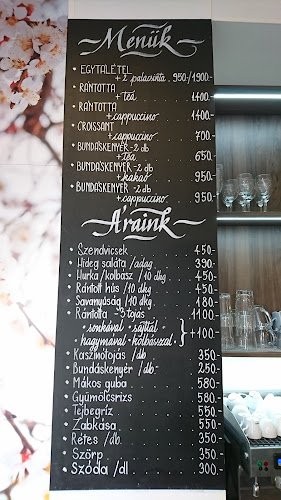 Menük
• EGYTÁLÉTEL
+2 palacsinta . 950/1900.-
• RÁNTOTTA
+ Tea . . . . . 1400.-
• RÁNTOTTA
+cappuccino . . 1400.-
• CROISSANT
+cappuccino . . 700.-
• BUNDÁSKENYÉR - 2 db
+tea . . . . 650.-
• BUNDÁSKENYÉR - 2 db
+kakaó . . . . 950.-
• BUNDÁSKENYÉR - 2 db
+cappuccino . . 950.-
Áraink
• Szendvicsek . . . 450.-
• Hideg saláta /adag . . 390.-
• Hurka /kolbász / 10 dkg . 450.-
• Rántott hús / 10 dkg . . 450.-
• Savanyúság / 10 dkg . . 180.-
• Rántotta - 3 tojás . . 1100.-
• sonkával • sajttal
• hagymával • kolbásszal } +100.-
• Kaszinótojás /db . . 350.-
• Bundáskenyér /db . . 250.-
• Mákos guba . . . 580.-
• Gyümölcsrizs . . . 580.-
• Tejbegríz . . . 550.-
• Zabkása . . . 550.-
• Rétes /db . . . 350.-
• Szörp . . . 350.-
• Szóda /dl . . . 300.-